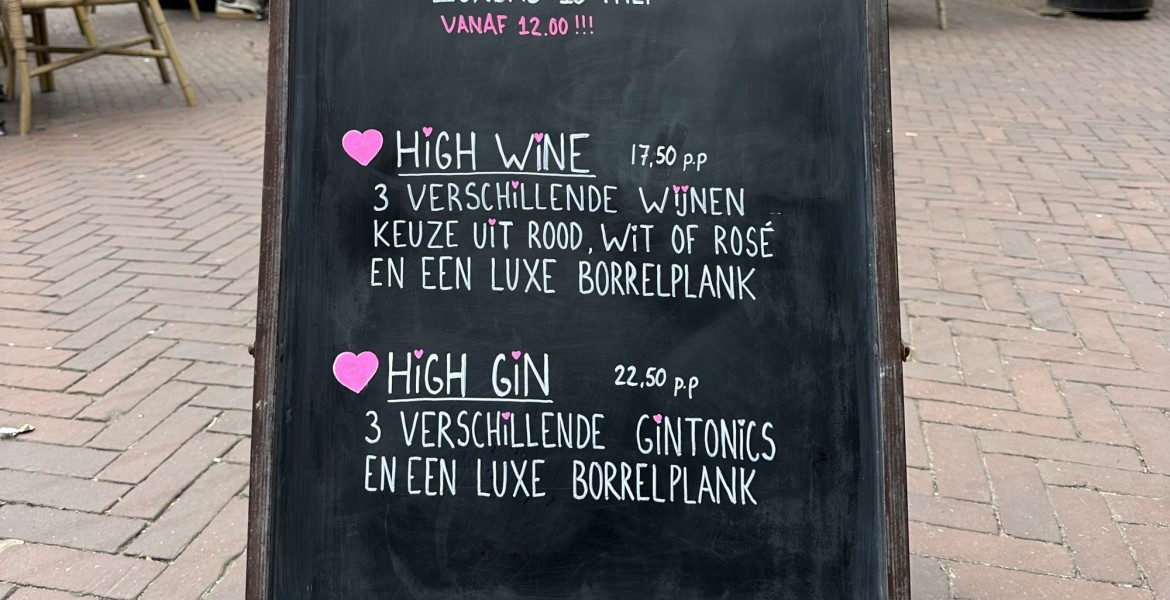 VANAF 12.00 !!!
HiGH WiNE 17,50 p.p
3 VERSCHiLLENDE WijNEN
KEUZE UiT ROOD, WiT OF ROSÉ
EN EEN LUXE BORRELPLANK
HiGH GiN 22,50 p.p
3 VERSCHiLLENDE GiNTONiCS
EN EEN LUXE BORRELPLANK